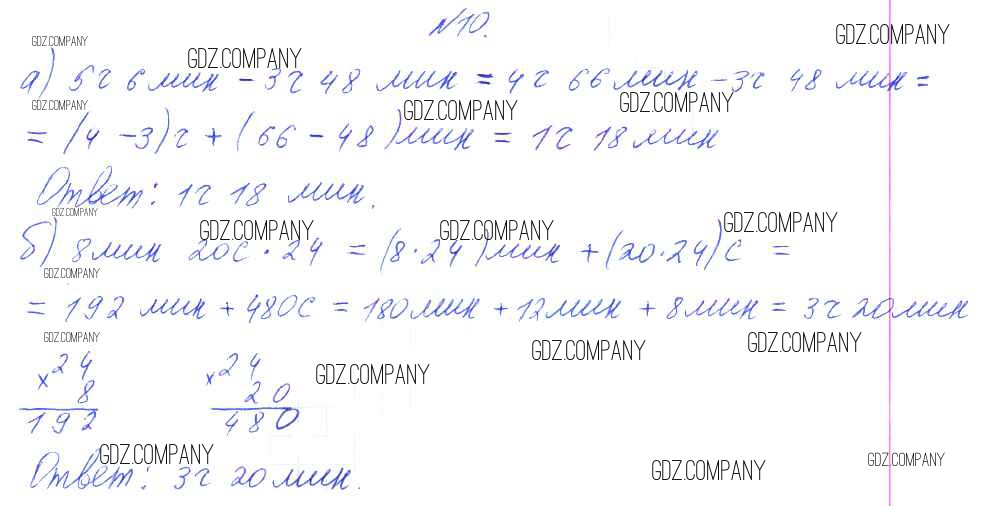 №10.
GDZ.COMPANY GDZ.COMPANY GDZ.COMPANY
а) 5ч 6 мин – 3ч 48 мин = 4ч 66 мин – 3ч 48 мин =
GDZ.COMPANY GDZ.COMPANY GDZ.COMPANY
= (4 – 3)ч + (66 – 48) мин = 1ч 18 мин
Ответ: 1ч 18 мин.
GDZ.COMPANY GDZ.COMPANY GDZ.COMPANY GDZ.COMPANY
б) 8 мин 20с · 24 = (8 · 24) мин + (20 · 24) с =
GDZ.COMPANY
= 192 мин + 480с = 180 мин + 12 мин + 8 мин = 3ч 20 мин
GDZ.COMPANY GDZ.COMPANY GDZ.COMPANY GDZ.COMPANY
× 24 × 24
8 20
192 480
GDZ.COMPANY GDZ.COMPANY GDZ.COMPANY
Ответ: 3ч 20 мин.